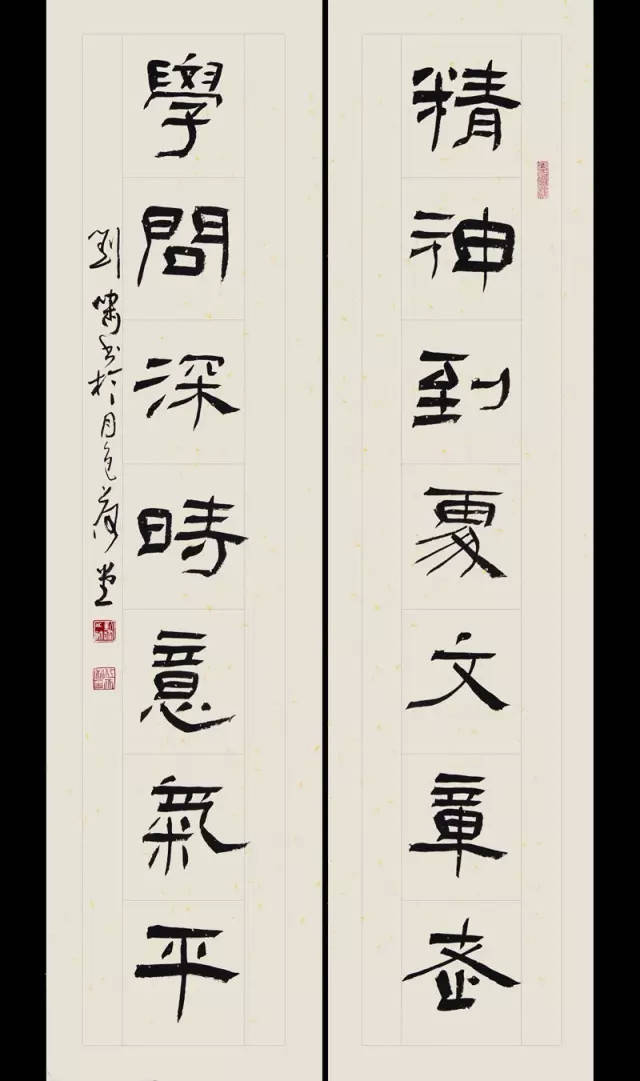 精神到處文章老
學問深時意氣平
劉嘯書於月色堂